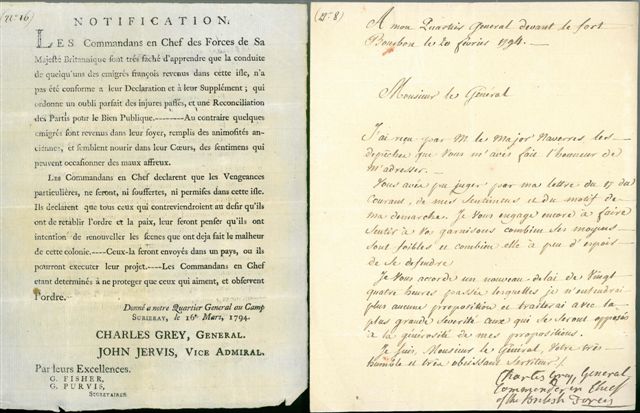 (N.º 16)
NOTIFICATION.
LES Commandans en Chef des Forces de Sa
Majesté Britannique sont trés faché d'apprendre que la conduite
de quelqu'uns des emigrés françois revenus dans cette isle, n'a
pas été conforme a leur Declaration et à leur Supplément; qui
ordonne un oubli parfait des injures passés, et une Reconciliation
des Partis pour le Bien Publique.--------Au contraire quelques
emigrés sont revenus dans leur foyer, remplis des animosités an-
ciennes, et semblent nourir dans leur Cœurs, des sentimens qui
peuvent occasionner des maux affreux.
Les Commandans en Chef declarent que les Vengeances
particulières, ne seront, ni souffertes, ni permises dans cette isle.
Ils declarent que tous ceux qui contreviendroient au desir qu'ils
ont de retablir l'ordre et la paix, leur feront penser qu'ils ont
intention de renouveller les scenes que ont deja fait le malheur
de cette colonie.----Ceux-la seront envoyés dans un pays, ou ils
pourront executer leur projet.----Les Commandans en Chef
etant determinés à ne proteger que ceux qui aiment, et observent
l'ordre.
Donné a notre Quartier General au Camp
SURIREAY, le 16e. Mars, 1794.
CHARLES GREY, GENERAL.
JOHN JERVIS, VICE ADMIRAL.
Par leurs Excellences.
G. FISHER,
G. PURVIS,
SECRETAIRES.
(N.º 8)
A mon Quartier General devant le fort
Bourbon le 20 fevrier 1794.
Monsieur le Général
J'ai reçu par M. le Major Navarres les
depêches que Vous m'avés fait l'honneur de
m'adresser.
Vous avés pu juger par ma lettre du 17 du
Courant, de mes Sentimens et du motif de
ma demarche. Je Vous engage encore à faire
Sentir à Vos garnisons combien Ses moyens
Sont foibles et combien elle à peu d'espoir
de Se defendre
Je Vous accorde un nouveau delai de Vingt
quatre heures passée lesquelles je n'entendrai
plus aucune proposition et traiterai avec la
plus grande Severité ceux qui Se seront opposés
à la générosité de mes propositions.
Je Suis, Monsieur le Général, Votre très
humble et très obéissant Serviteur /.
Charles Grey, General
Commander in Chief
of the British Forces